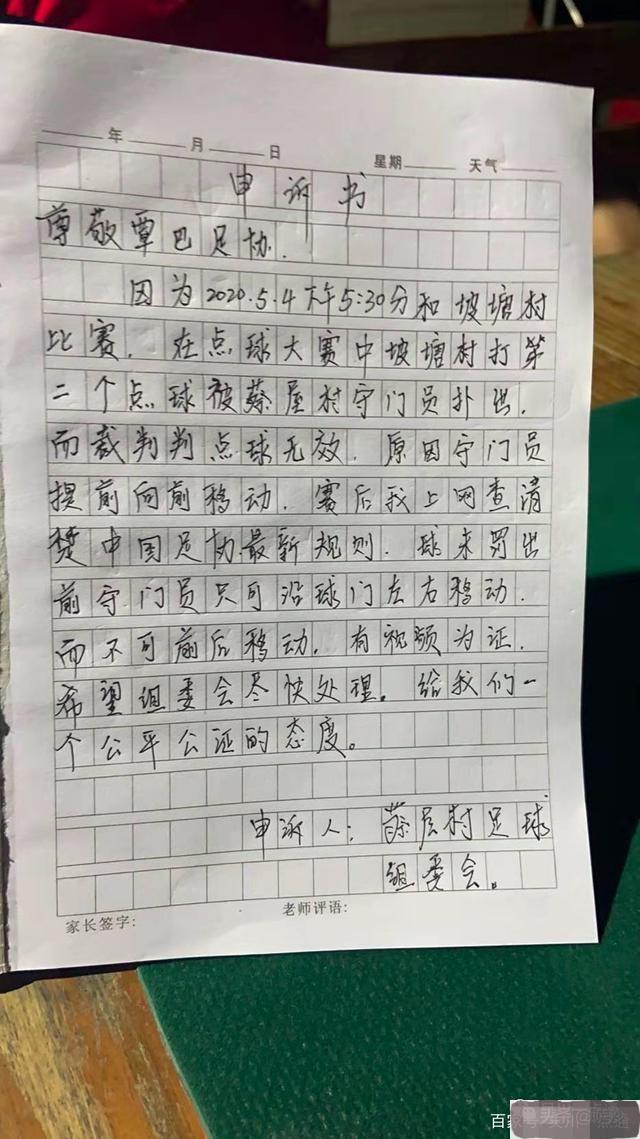 年 月 日 星期 天气
申诉书
尊敬覃巴足协.
因为2020.5.4下午5:30分和坡塘村
比赛. 在点球大赛中坡塘村打第
二个点球被蔡屋村守门员扑出.
而裁判判点球无效. 原因守门员
提前向前移动. 赛后我上网查清
楚中国足协最新规则. 球未罚出
前守门员只可沿球门左右移动.
而不可前后移动. 有视频为证.
希望组委会尽快处理。给我们一
个公平公证的态度。
申诉人: 蔡屋村足球
组委会。
家长签字: 老师评语:
百家号
头条